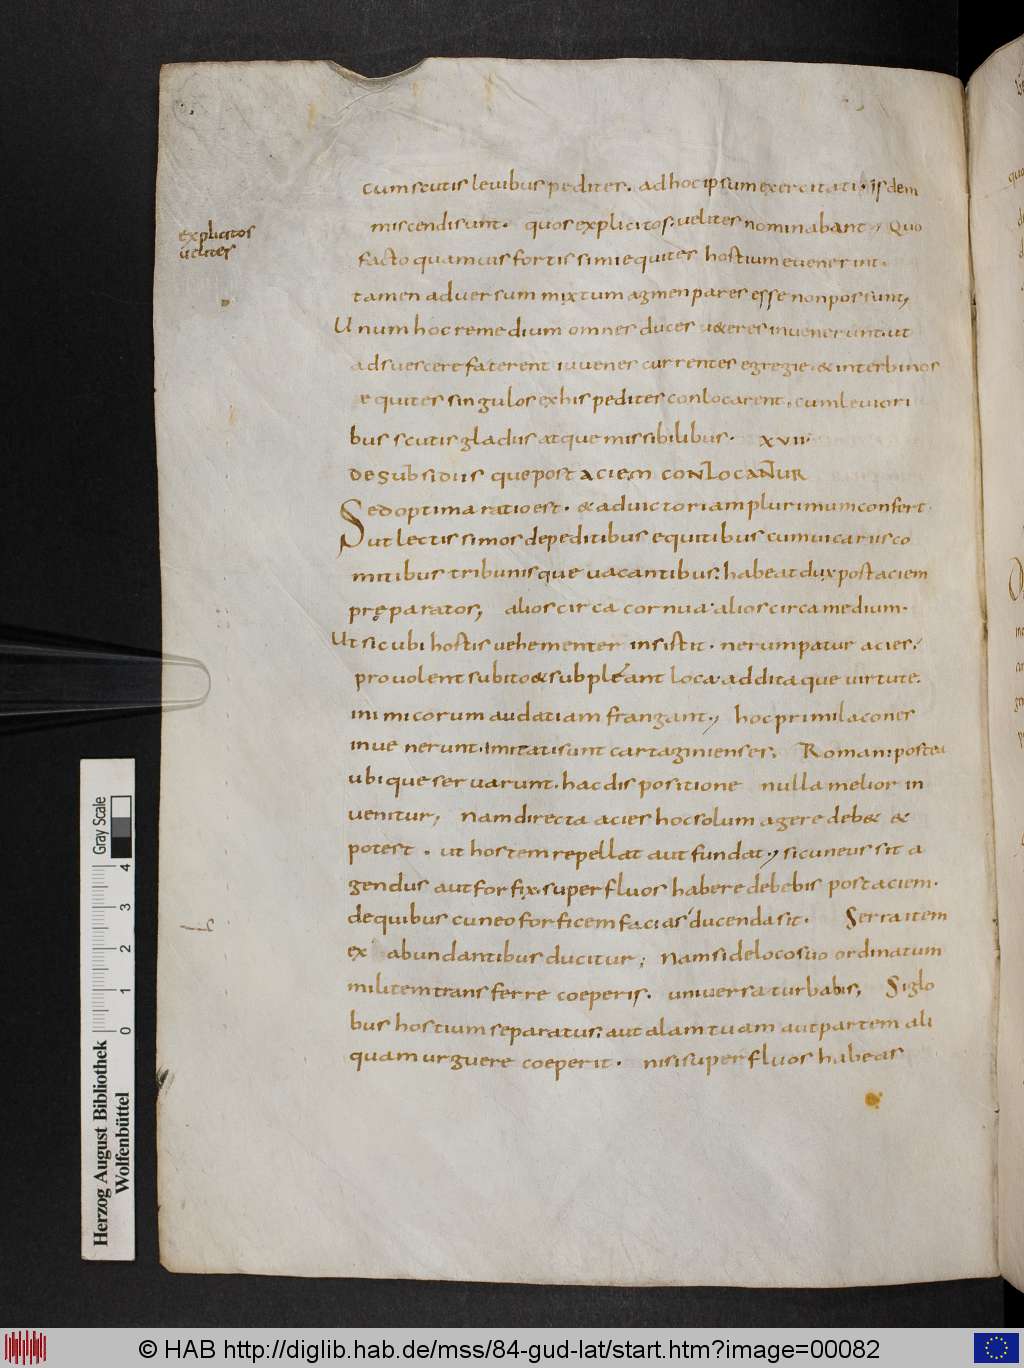 cum scutis leuibus pedites. ad hoc ipsum exercitati. isdem
explicitos
uelites
miscendi sunt. quos explicitos. uelites nominabant, Quo
facto quamuis fortissimi equites hostium euenerint.
tamen aduersum mixtum agmen pares esse non possunt,
Unum hoc remedium omnes duces u&eres inuenerunt. ut
adsuescere faterent iuuenes currentes egregie. & inter binos
equites singulos ex his pedites conlocarent. cum leuiori
bus scutis gladiis atque missibilibus. XVII
DE SUBSIDIIS QUE POST ACIEM CONLOCANTUR
Sed optima ratio est. & ad uictoriam plurimum confert.
ut lectissimos de peditibus equitibus cum uicariis co
mitibus tribunisque uacantibus. habeat dux post aciem
pręparatos, alios circa cornua. alios circa medium.
Ut sicubi hostis uehementer insistit. ne rumpatur acies.
prouolent subito & subpleant loca. additaque uirtute.
inimicorum audatiam frangant, hoc primi lacones
inuenerunt. imitati sunt cartaginienses, Romani postea
ubique seruarunt. hac dispositione nulla melior in
uenitur, nam directa acies hoc solum agere deb& &
potest. ut hostem repellat aut fundat, si cuneus sit a
gendus aut forfix. superfluos habere debebis post aciem.
de quibus cuneo forficem facias ducenda sit. Serra item
ex abundantibus ducitur, nam si de loco suo ordinatum
militem transferre coeperis. uniuersa turbabis, Si glo
bus hostium separatus. aut alam tuam aut partem ali
quam urguere coeperit. nisi superfluos habeas
Gray Scale
0 1 2 3 4
Herzog August Bibliothek
Wolfenbüttel
© HAB http://diglib.hab.de/mss/84-gud-lat/start.htm?image=00082